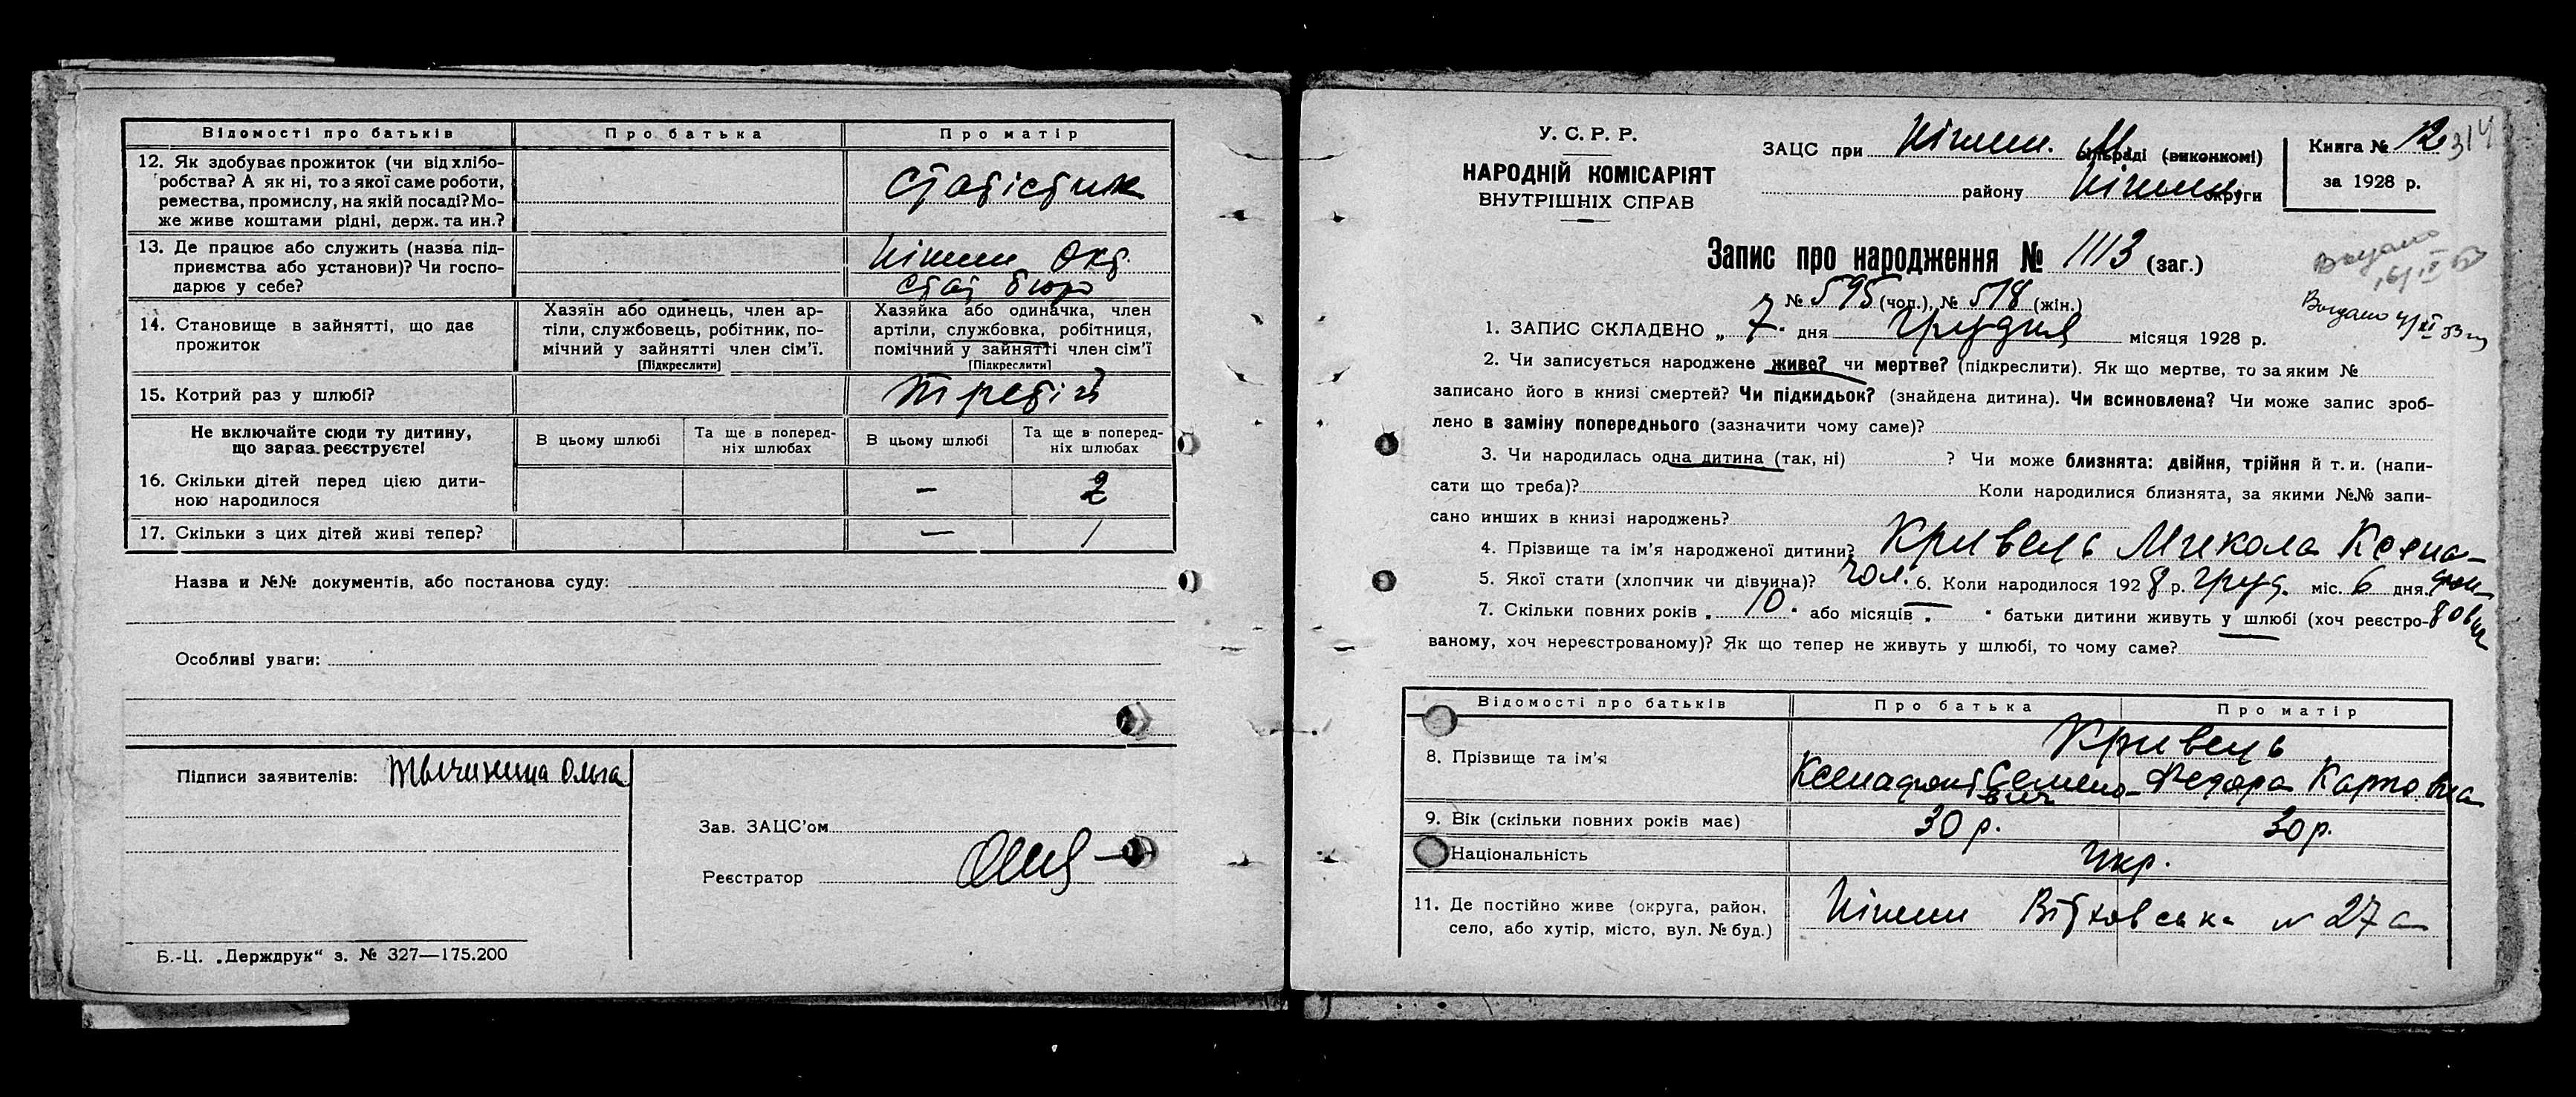 Відомості про батьків
Про батька
Про матір
12. Як здобуває прожиток (чи від хлібо-
робства? А як ні, то з якої саме роботи,
ремества, промислу, на якій посаді? Мо-
же живе коштами рідні, держ. та ин.?
Статістик
13. Де працює або служить (назва під-
приємства або установи)? Чи госпо-
дарює у себе?
Ніжин Окр.
Стат бюро
14. Становище в зайнятті, що дає
прожиток
Хазяїн або одинець, член ар-
тіли, службовець, робітник, по-
мічний у зайнятті член сім'ї.
[Підкреслити]
Хазяйка або одиначка, член
артіли, службовка, робітниця,
помічний у зайнятті член сім'ї
[Підкреслити]
15. Котрий раз у шлюбі?
третій
Не включайте сюди ту дитину,
що зараз реєструєте!
В цьому шлюбі
Та ще в поперед-
ніх шлюбах
В цьому шлюбі
Та ще в поперед-
ніх шлюбах
16. Скільки дітей перед цією дити-
ною народилося
— 2
17. Скільки з цих дітей живі тепер?
— 1
Назва и №№ документів, або постанова суду:
Особливі уваги:
Підписи заявителів:
Ольга
Зав. ЗАЦС'ом
Реєстратор
Б.-Ц. „Держдрук“ з. № 327—175.200
У. С. Р. Р.
НАРОДНІЙ КОМІСАРІЯТ
ВНУТРІШНІХ СПРАВ
ЗАЦС при Ніжин. М. сільраді (виконкомі)
району Ніжинськ округи
Книга № 12
за 1928 р.
314
Запис про народження № 1113 (заг.)
№ 595 (чол.), № 518 (жін.)
Видано
Видано 4/XI 53
1. ЗАПИС СКЛАДЕНО „ 7 " дня Грудня місяця 1928 р.
2. Чи записується народжене живе? чи мертве? (підкреслити). Як що мертве, то за яким №
записано його в книзі смертей? Чи підкидьок? (знайдена дитина). Чи всиновлена? Чи може запис зроб-
лено в заміну попереднього (зазначити чому саме)?
3. Чи народилась одна дитина (так, ні) ? Чи може близнята: двійня, трійня й т. и. (напи-
сати що треба)? Коли народилися близнята, за якими №№ запи-
сано инших в книзі народжень?
4. Прізвище та ім'я народженої дитини? Кривець Микола Ксена-
фон-
5. Якої стати (хлопчик чи дівчина)? Чол. 6. Коли народилося 1928 р. груд. міс. 6 дня.
дович
7. Скільки повних років „ 10 " або місяців „ — " батьки дитини живуть у шлюбі (хоч реєстро-
ваному, хоч нереєстрованому)? Як що тепер не живуть у шлюбі, то чому саме?
Відомості про батьків
Про батька
Про матір
8. Прізвище та ім'я
Кривець
Ксенафонт Семено-
вич
Федора Карповна
9. Вік (скільки повних років має)
30 р.
30 р.
Національність
Укр.
11. Де постійно живе (округа, район,
село, або хутір, місто, вул. № буд.)
Ніжин № 27 а